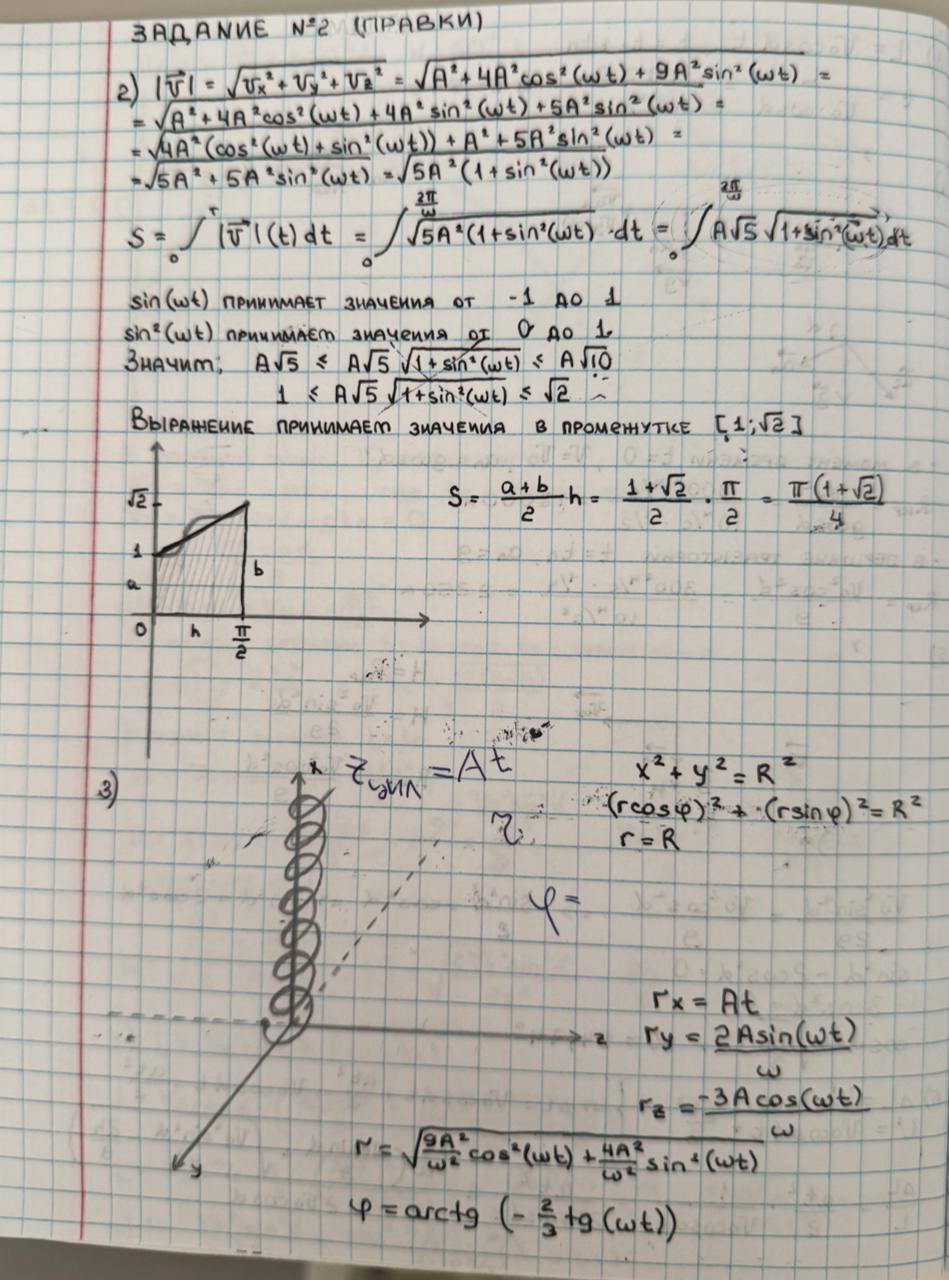 ЗАДАНИЕ №2 (ПРАВКИ)
2) |v⃗| = √(Vx² + Vy² + Vz²) = √(A² + 4A²cos²(ωt) + 9A²sin²(ωt)) =
= √(A² + 4A²cos²(ωt) + 4A²sin²(ωt) + 5A²sin²(ωt)) =
= √(4A²(cos²(ωt) + sin²(ωt)) + A² + 5A²sin²(ωt)) =
= √(5A² + 5A²sin²(ωt)) = √(5A²(1 + sin²(ωt)))
S = ∫₀^τ |v⃗|(t) dt = ∫₀^(2π/ω) √(5A²(1+sin²(ωt)) · dt = ∫₀^(2π/ω) A√5 √(1+sin²(ωt)) dt
sin(ωt) ПРИНИМАЕТ ЗНАЧЕНИЯ ОТ -1 ДО 1
sin²(ωt) ПРИНИМАЕТ ЗНАЧЕНИЯ ОТ 0 ДО 1.
Значит; A√5 ≤ A√5 √(1+sin²(ωt)) ≤ A√10
1 ≤ A√5 √(1+sin²(ωt)) ≤ √2
ВЫРАЖЕНИЕ ПРИНИМАЕТ ЗНАЧЕНИЯ В ПРОМЕЖУТКЕ [1;√2]
S = (a+b)/2 h = (1+√2)/2 · π/2 = π(1+√2)/4
√2
1
a
b
0 h π/2
3)
x z цил = At
x² + y² = R²
(rcosφ)² + (rsinφ)² = R²
r = R
r
φ =
z
y
rx = At
ry = 2Asin(ωt)/ω
rz = -3Acos(ωt)/ω
r = √(9A²/ω² cos²(ωt) + 4A²/ω² sin²(ωt))
φ = arctg (-2/3 tg(ωt))